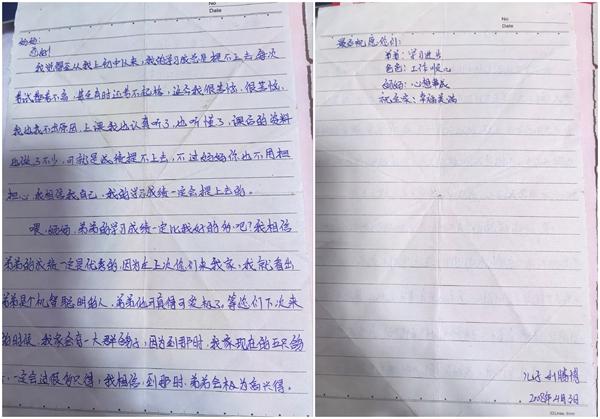 No
Date
妈妈:
您好!
我觉得至从我上初中以来,我的学习成绩总是提不上去,每次
考试都考不高,甚至有时还考不起格,这令我很苦恼、很苦恼、
我也找不出原因,上课我也认真听了,也听懂了,课后的资料
也做了不少,可就是成绩提不上去,不过妈妈你也不用担
担心,我相信我自己,我的学习成绩一定会提上去的。
喂,妈妈,弟弟的学习成绩一定比我好的多吧?我相信
弟弟的成绩一定是优秀的,因为在上次您们来我家,我就看出
弟弟是个机智聪明的人,弟弟他可真得可爱极了。等您们下次来
的时候,我家会有一大群鸽子,因为到那时,我家现在的五只鸽
一定会过很多只得,我相信,到那时,弟弟会极为高兴得。
No
Date
最后祝愿你们:
弟弟:学习进步
爸爸:工作顺心
妈妈:心想事成
祝全家:幸福美满
儿子
2008年4月3日